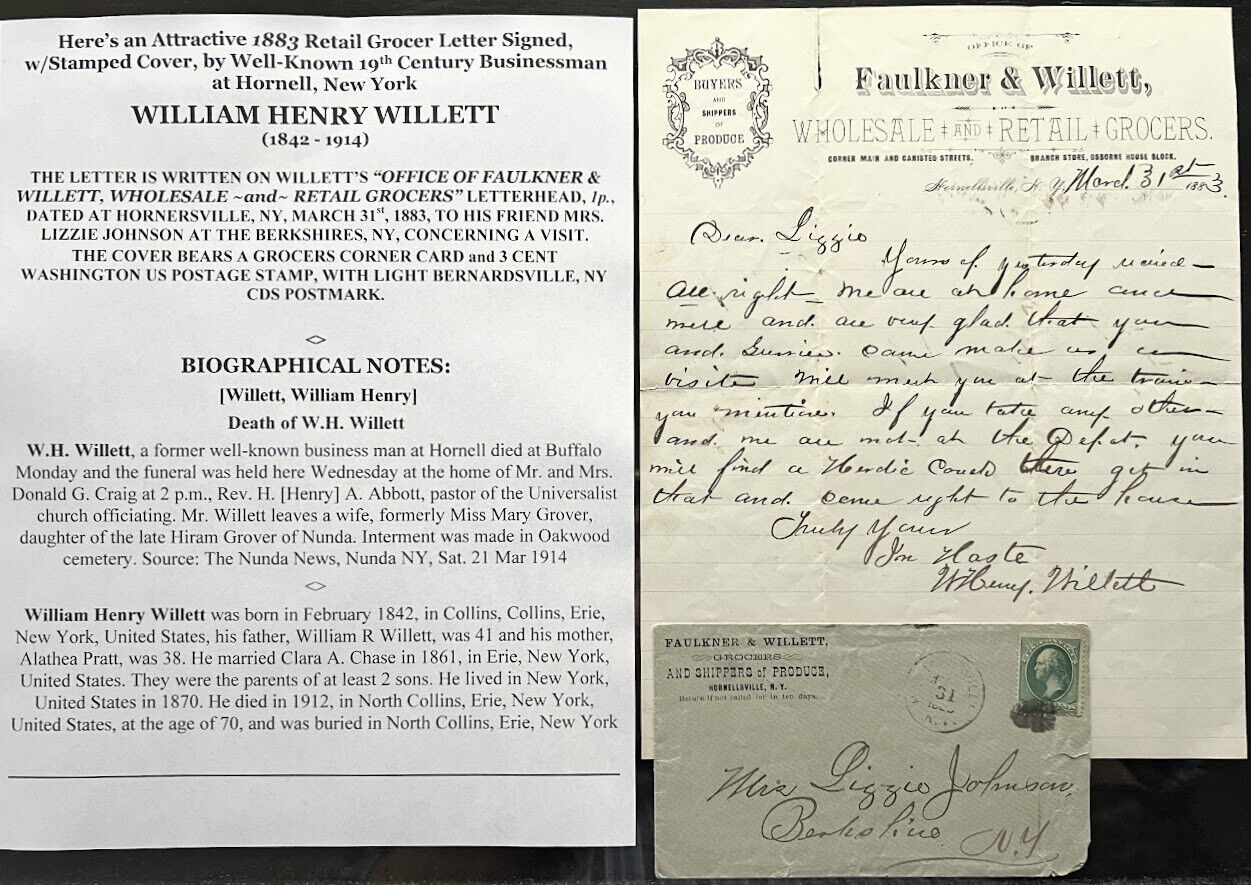 Here's an Attractive 1883 Retail Grocer Letter Signed,
w/Stamped Cover, by Well-Known 19th Century Businessman
at Hornell, New York
WILLIAM HENRY WILLETT
(1842 - 1914)
THE LETTER IS WRITTEN ON WILLETT'S "OFFICE OF FAULKNER &
WILLETT, WHOLESALE ~and~ RETAIL GROCERS" LETTERHEAD, 1p.,
DATED AT HORNERSVILLE, NY, MARCH 31st, 1883, TO HIS FRIEND MRS.
LIZZIE JOHNSON AT THE BERKSHIRES, NY, CONCERNING A VISIT.
THE COVER BEARS A GROCERS CORNER CARD and 3 CENT
WASHINGTON US POSTAGE STAMP, WITH LIGHT BERNARDSVILLE, NY
CDS POSTMARK.
BIOGRAPHICAL NOTES:
[Willett, William Henry]
Death of W.H. Willett
W.H. Willett, a former well-known business man at Hornell died at Buffalo
Monday and the funeral was held here Wednesday at the home of Mr. and Mrs.
Donald G. Craig at 2 p.m., Rev. H. [Henry] A. Abbott, pastor of the Universalist
church officiating. Mr. Willett leaves a wife, formerly Miss Mary Grover,
daughter of the late Hiram Grover of Nunda. Interment was made in Oakwood
cemetery. Source: The Nunda News, Nunda NY, Sat. 21 Mar 1914
William Henry Willett was born in February 1842, in Collins, Collins, Erie,
New York, United States, his father, William R Willett, was 41 and his mother,
Alathea Pratt, was 38. He married Clara A. Chase in 1861, in Erie, New York,
United States. They were the parents of at least 2 sons. He lived in New York,
United States in 1870. He died in 1912, in North Collins, Erie, New York,
United States, at the age of 70, and was buried in North Collins, Erie, New York
OFFICE OF
Faulkner & Willett,
BUYERS
AND
SHIPPERS
OF
PRODUCE
WHOLESALE AND RETAIL GROCERS.
CORNER MAIN AND CANISTEO STREETS. BRANCH STORE, OSBORNE HOUSE BLOCK.
Hornellsville, N. Y. March 31st 1883
Dear Lizzie
Yours of yesterday recived
All right we are at home and
well and are very glad that you
and can make us a
visit Will meet you at the train
you mention. If you take any other
and we are not at the Depot you
will find a Herdic Coach there get in
that and come right to the house
Truly Yours
In Haste
W Henry Willett
FAULKNER & WILLETT,
GROCERS
AND SHIPPERS of PRODUCE,
HORNELLSVILLE, N. Y.
Return if not called for in ten days.
31
N.Y.
Mrs Lizzie Johnson,
Berkshire
N.Y